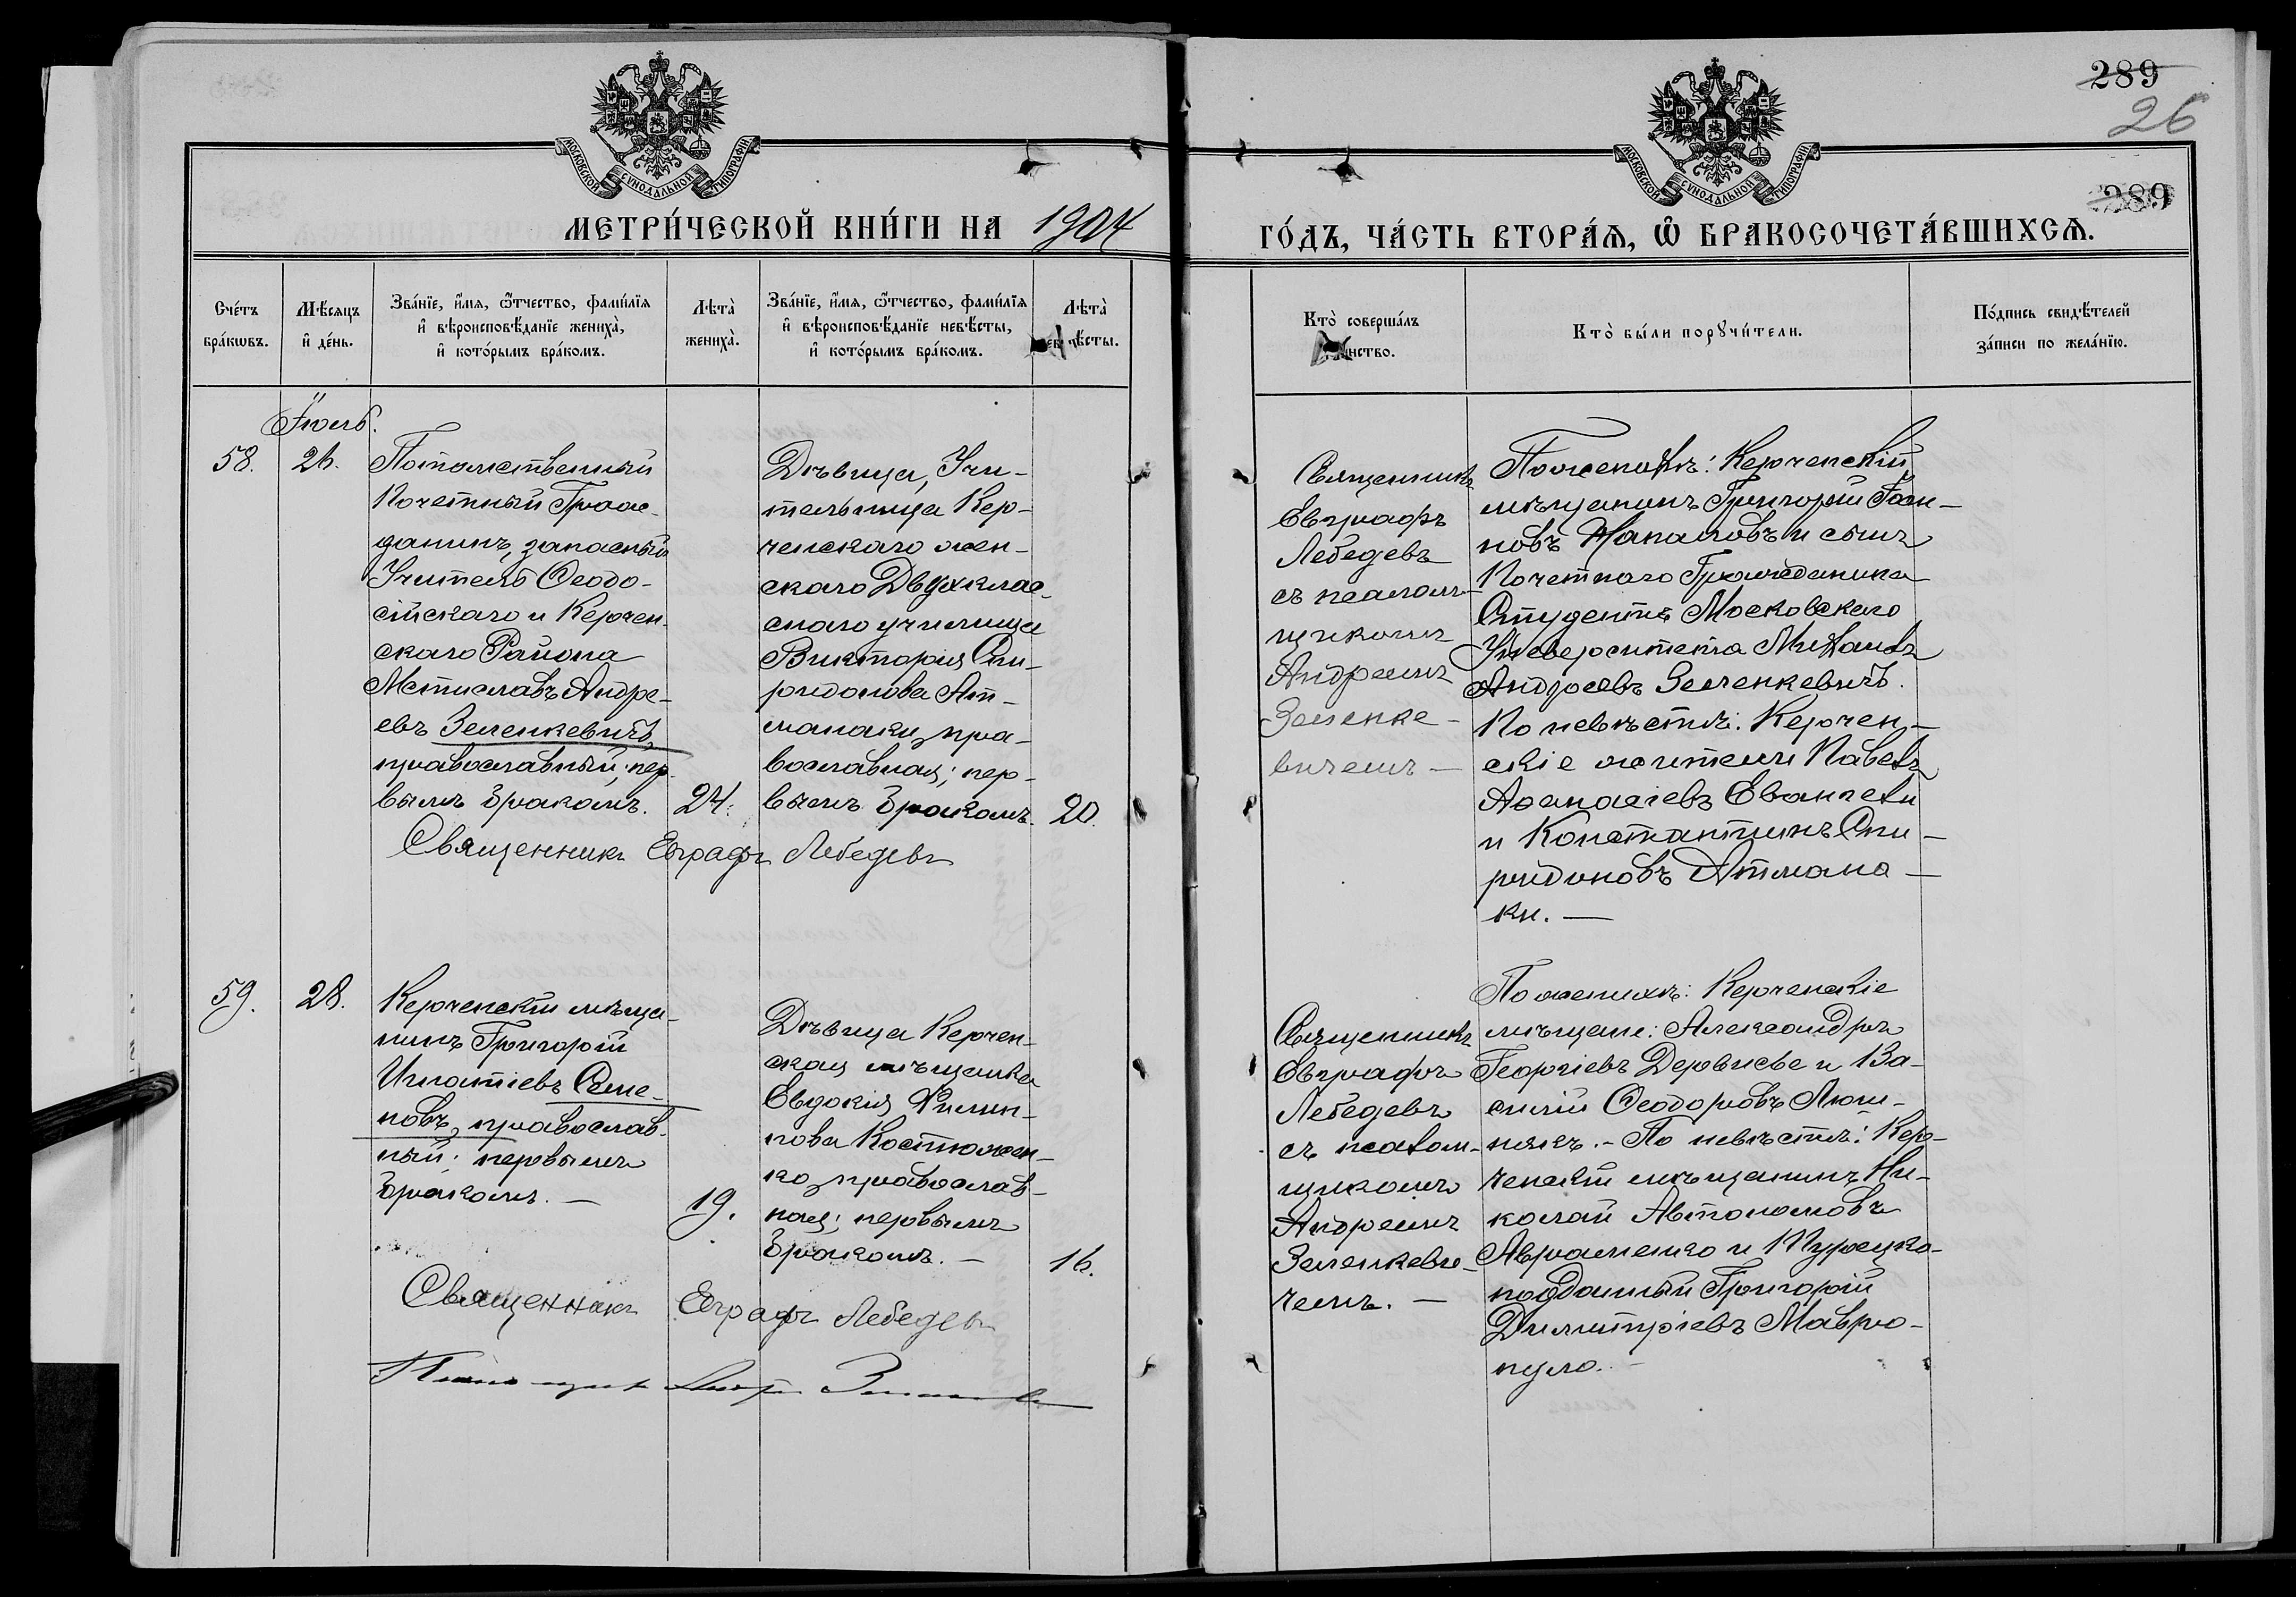 289
26
289
МОСКОВСКОЙ СѴНОДАЛЬНОЙ ТИПОГРАФІИ
МОСКОВСКОЙ СѴНОДАЛЬНОЙ ТИПОГРАФІИ
МЕТРИ́ЧЕСКОЙ КНИ́ГИ НА 1904
ГО́ДЪ, ЧА́СТЬ ВТОРА́Я, Ѽ БРАКОСОЧЕТА́ВШИХСѦ.
Сче́тъ
бра́кѡвъ.
Мѣ́сяцъ
и҆ де́нь.
Зва́нїе, и҆́мя, ѻ҆́тчество, фами́лїя
и҆ вѣроисповѣ́данїе жениха̀,
и҆ кото́рымъ бра́комъ.
Лѣта̀
жениха̀.
Зва́нїе, и҆́мя, ѻ҆́тчество, фами́лїя
и҆ вѣроисповѣ́данїе невѣ́сты,
и҆ кото́рымъ бра́комъ.
Лѣта̀
невѣ́сты.
Кто̀ соверша́лъ
таинство.
Кто̀ бы́ли порꙋчи́тели.
По́дпись свидѣ́телей
за́писи по жела́нїю.
Іюль.
58.
26.
Потомственный
Почетный Граж-
данинъ, запасный
Учитель Ѳеодо-
сійскаго и Керчен-
скаго Района
Мстиславъ Андре-
евъ Зеленкевичъ,
православный; пер-
вымъ бракомъ.
24.
Дѣвица, Учи-
тельница Кер-
ченскаго жен-
скаго Двухклас-
снаго училища
Викторія Спи-
ридонова Ат-
манаки, пра-
вославная; пер-
вымъ бракомъ.
20.
Священникъ Евграфъ Лебедевъ
Священникъ
Евграфъ
Лебедевъ
съ псалом-
щикомъ
Андреемъ
Зеленке-
вичемъ —
По женихѣ: Керченскій
мѣщанинъ Григорій Іоан-
новъ Напаловъ и сынъ
Почетнаго Гражданина
Студентъ Московскаго
Университета Михаилъ
Андреевъ Зеленкевичъ.
По невѣстѣ: Керчен-
скіе жители Павелъ
Аѳанасіевъ Евангели
и Константинъ Спи-
ридоновъ Атмана-
ки. —
59.
28.
Керченскій мѣща-
нинъ Григорій
Игнатіевъ Семе-
новъ, православ-
ный; первымъ
бракомъ. —
19.
Дѣвица Керчен-
ская мѣщанка
Евдокія Филип-
пова Костюжен-
ко, православ-
ная; первымъ
бракомъ. —
16.
Священникъ Евграфъ Лебедевъ
Священникъ
Евграфъ
Лебедевъ
съ псалом-
щикомъ
Андреемъ
Зеленкеви-
чемъ. —
По женихѣ: Керченскіе
мѣщане: Александръ
Георгіевъ Дервисье и Ва-
силій Ѳеодоровъ Люш-
някъ. - По невѣстѣ: Кер-
ченскій мѣщанинъ Ни-
колай Автономовъ
Авраменко и Турецко-
подданный Григорій
Димитріевъ Мавро-
пуло. —